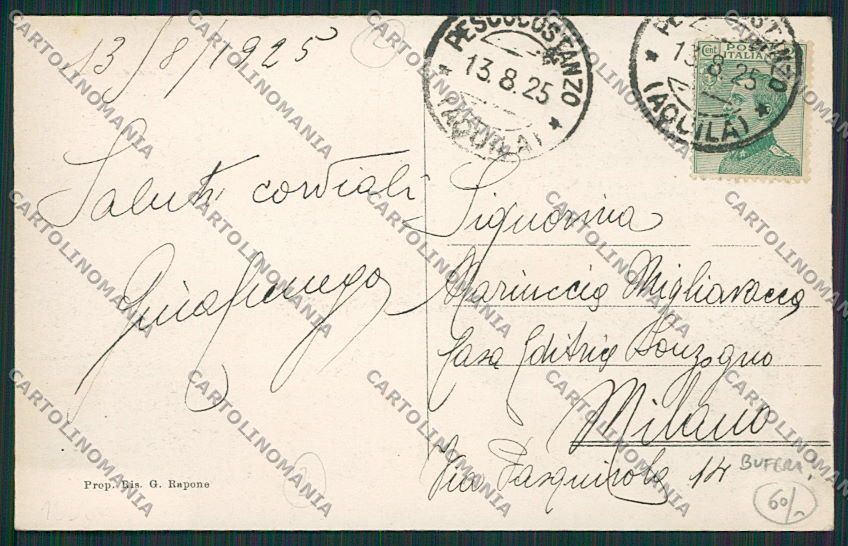 13/8/1925
PESCOCOSTANZO
13.8.25
(AQUILA)
PESCOCOSTANZO
13.8.25
(AQUILA)
Cent
POSTE
ITALIANE
Saluti cordiali
Signorina
Mariuccia Migliavacca
Casa Editrice Sonzogno
Milano
Via Pasquirolo 14
BUFERA!
60/-
Prop. Ris. G. Rapone
CARTOLINOMANIA